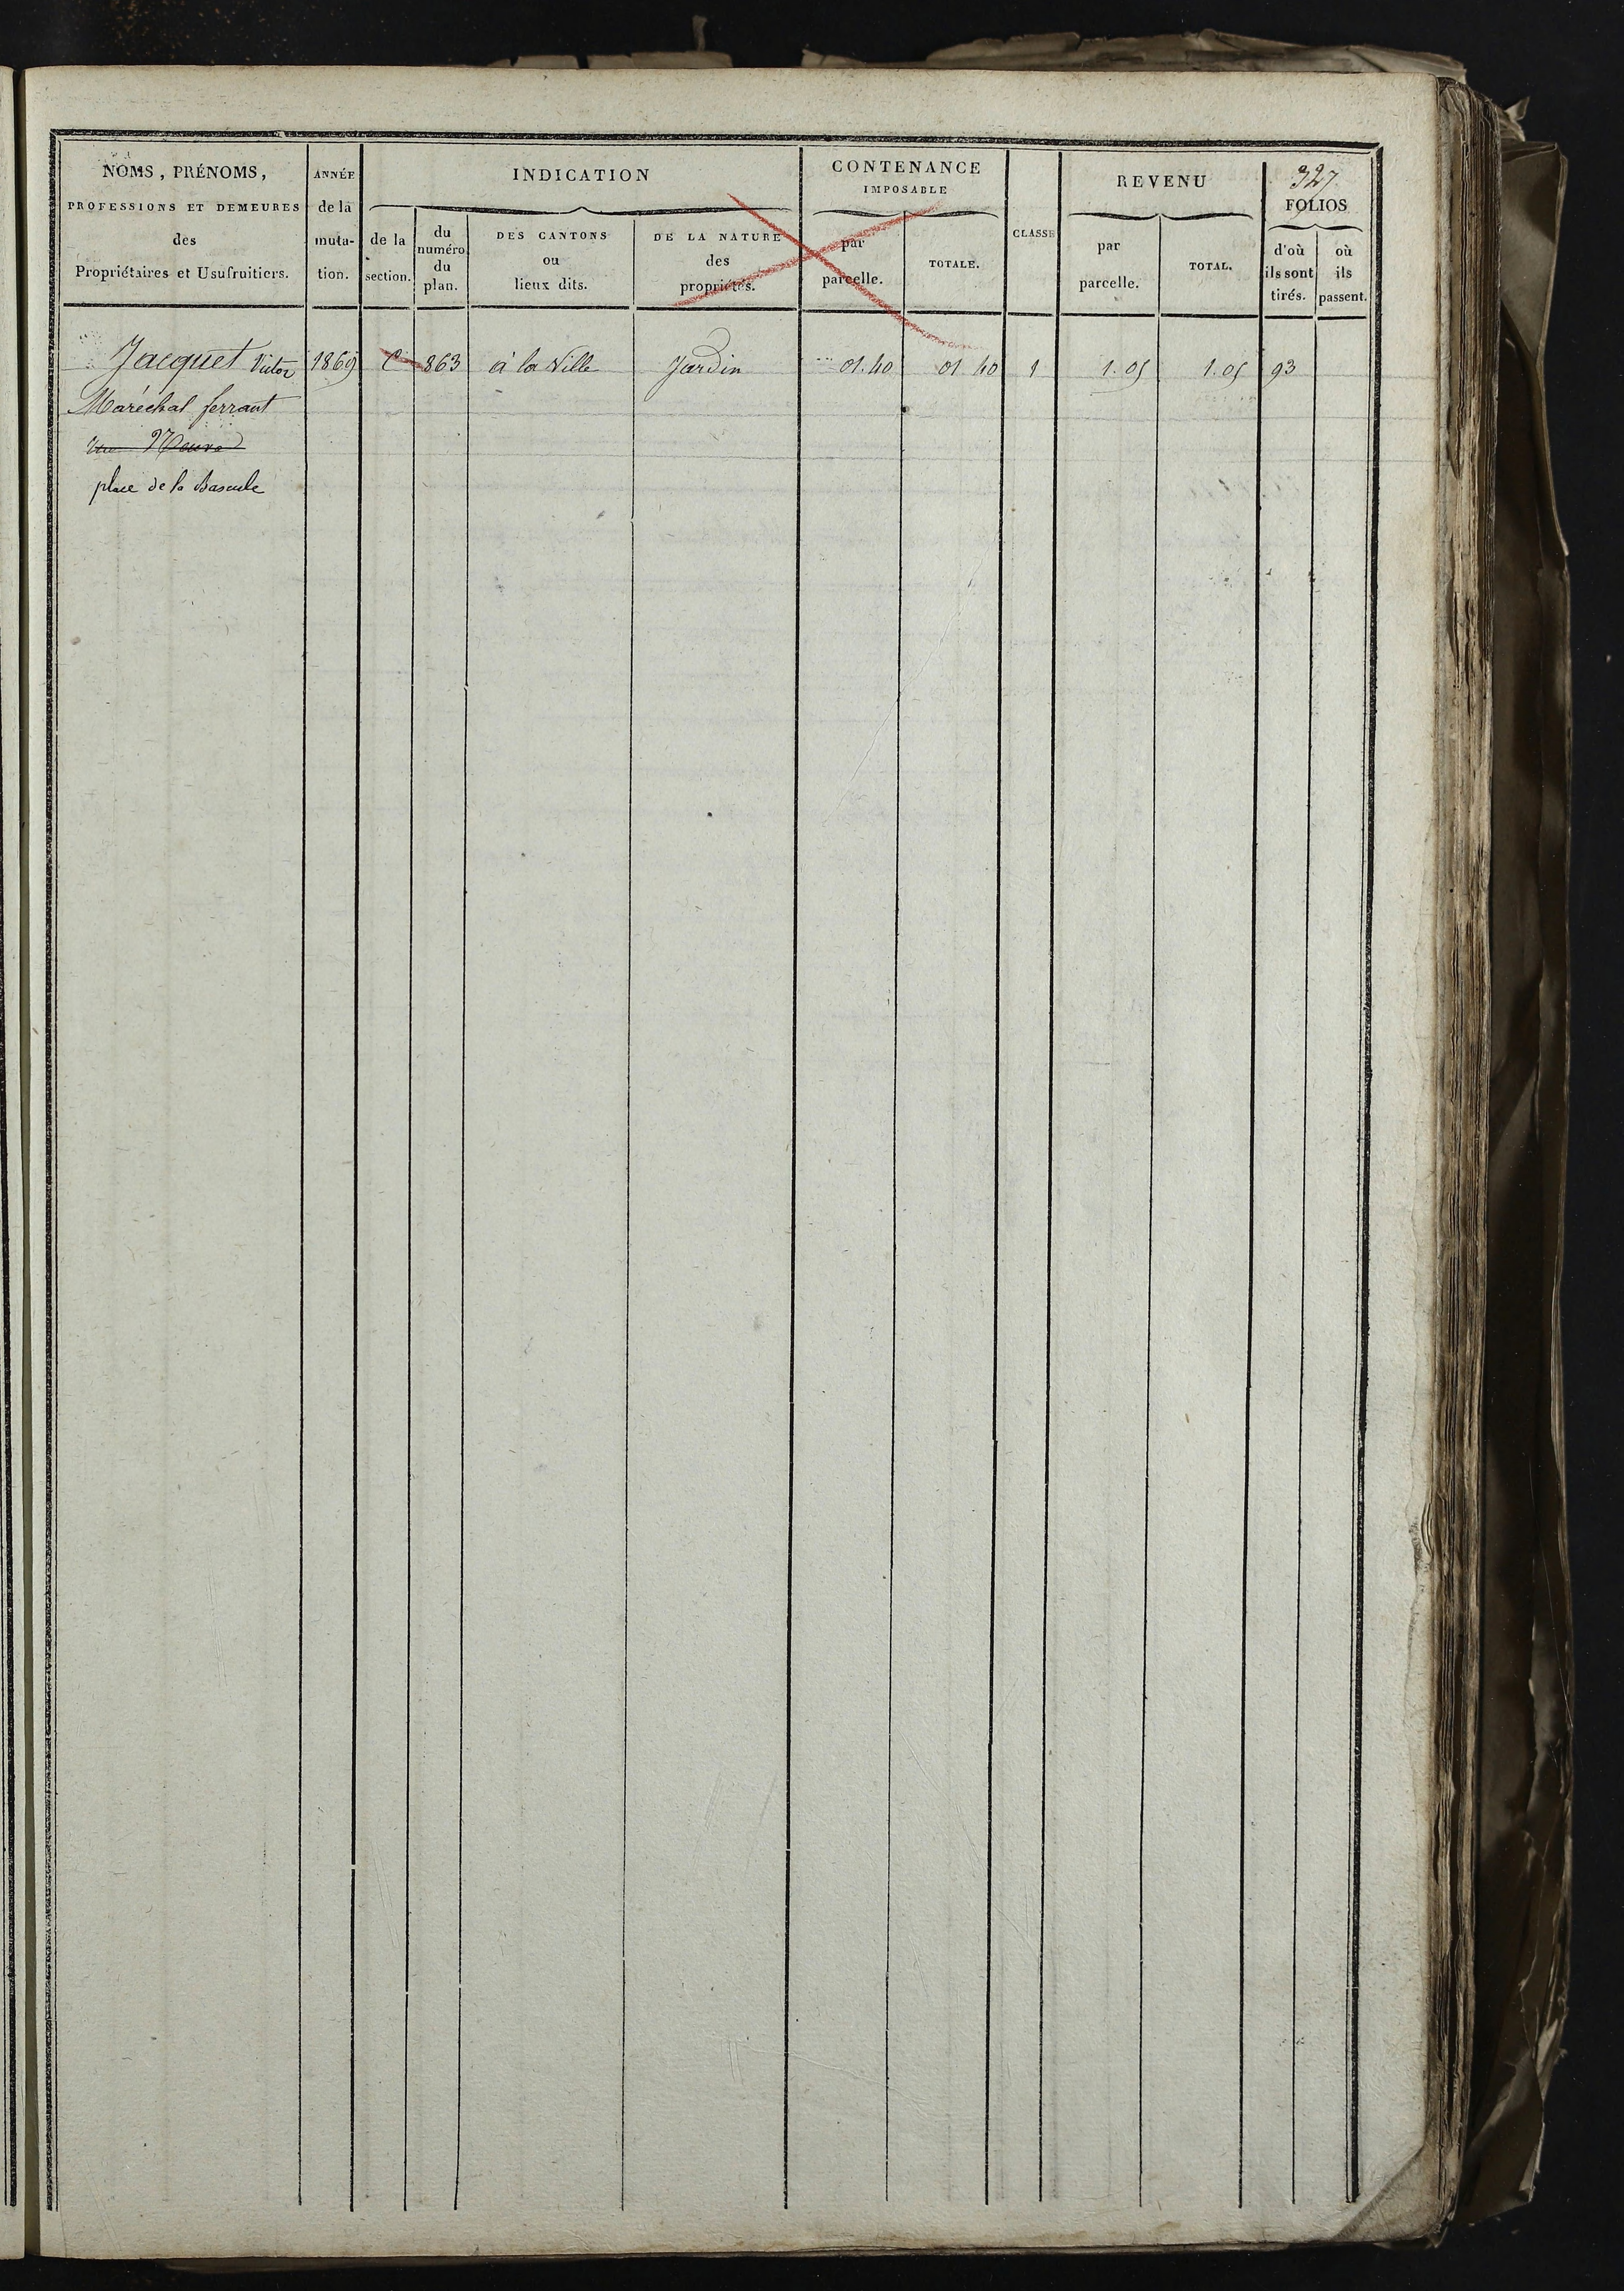 327
NOMS, PRÉNOMS,
PROFESSIONS ET DEMEURES
des
Propriétaires et Usufruitiers.
ANNÉE
de la
muta-
tion.
INDICATION
de la
section.
du
numéro
du
plan.
DES CANTONS
ou
lieux dits.
DE LA NATURE
des
propriétés.
CONTENANCE
IMPOSABLE
par
parcelle.
TOTALE.
CLASSE
REVENU
par
parcelle.
TOTAL.
FOLIOS
d'où
ils sont
tirés.
où
ils
passent.
Jacquet Victor 1869 C 863 à la Ville Jardin 01.40 01 40 1 1.05 1.05 93
Maréchal ferrant
rue Neuve
place de la Bascule